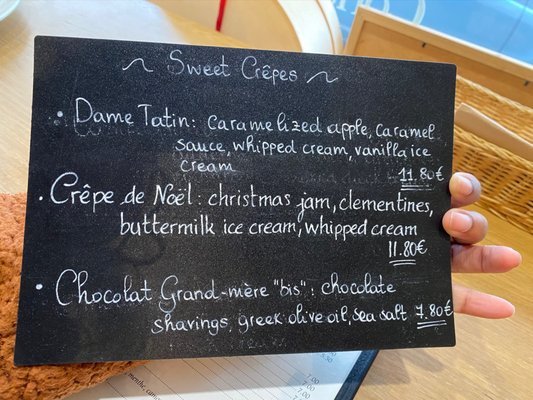 ~ Sweet Crêpes ~
• Dame Tatin: caramelized apple, caramel
sauce, whipped cream, vanilla ice
cream 11.80€
• Crêpe de Noël: christmas jam, clementines,
buttermilk ice cream, whipped cream
11.80€
• Chocolat Grand-mère "bis": chocolate
shavings, greek olive oil, sea salt 7.80€